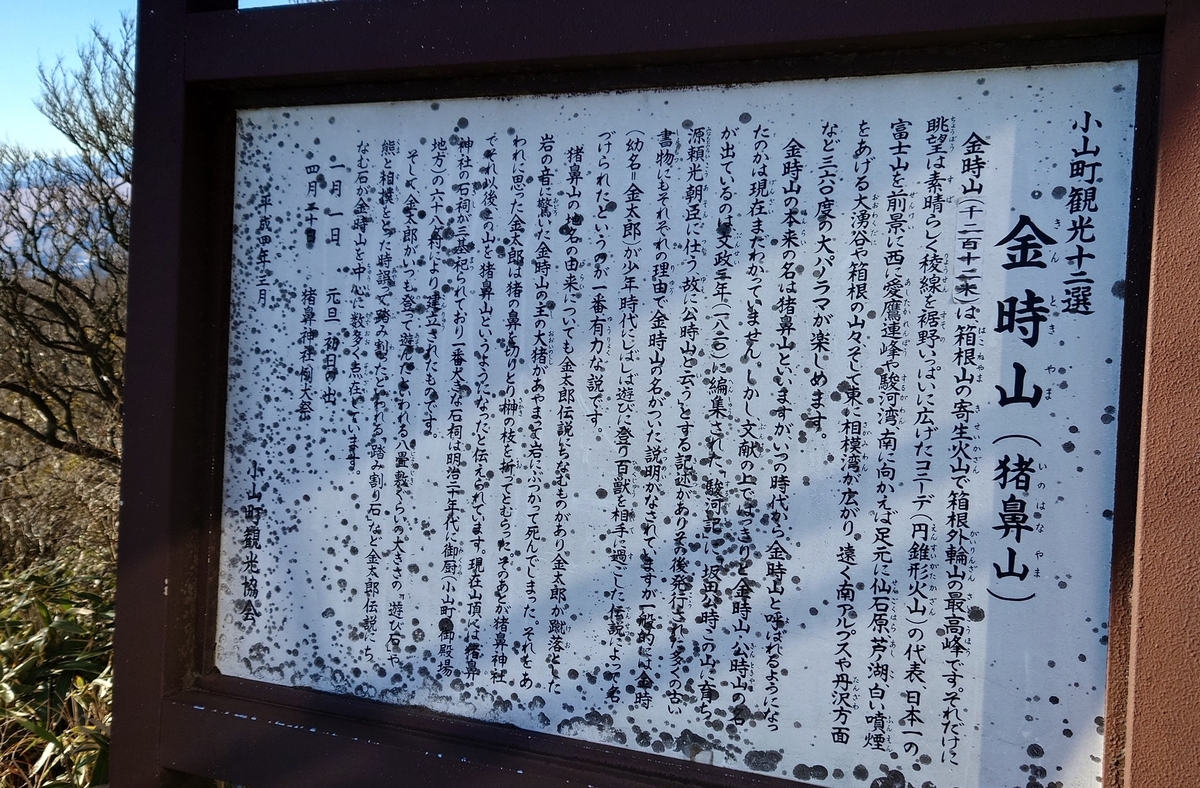 小山町観光十二選
金時山（猪鼻山）
金時山（千二百十二米）は箱根山の寄生火山で箱根外輪山の最高峰です。それだけに
眺望は素晴らしく稜線を裾野いっぱいに広げたコニーデ（円錐形火山）の代表、日本一の
富士山を前景に西に愛鷹連峰や駿河湾、南に向かえば足元に仙石原、芦ノ湖、白い噴煙
をあげる大湧谷や箱根の山々、そして東に相模湾が広がり、遠く南アルプスや丹沢方面
など三六〇度の大パノラマが楽しめます。
金時山の本来の名は猪鼻山といいますがいつの時代から金時山と呼ばれるようになっ
たのかは現在まだわかっていません。しかし文献の上ではっきりと金時山・公時山の名
が出ているのは文政三年（一八二〇）に編集された「駿河記」に「坂田公時この山に育ち、
源頼光朝臣に仕う故に公時山と云う」とする記述がありその後発行された多くの古い
書物にもそれぞれの理由で金時山の名がついた説明がなされていますが一般的には金時
（幼名＝金太郎）が少年時代にしばしば遊びに登り百獣を相手に過ごした伝説によって名
づけられたというのが一番有力な説です。
猪鼻山の地名の由来についても金太郎伝説にちなむものがあり金太郎が蹴落とした
岩の音に驚いた金時山の主の大猪があやまって岩にぶつかって死んでしまった。それをあ
われに思った金太郎は猪の鼻を切りとり榊の枝を折ってとむらった。そのあとが猪鼻神社
でそれ以後この山を猪鼻山というようになったと伝えられています。現在山頂には猪鼻
神社の石祠が三基祀られており一番大きな石祠は明治二十年代に御厨（小山町・御殿場
地方）の六十八村により建立されたものです。
そして金太郎がいつも登って遊んだといわれる八畳敷くらいの大きさの「遊び石」や
熊と相撲をとった時誤って踏み割ったといわれる「踏み割り石」など金太郎伝説にち
なむ石が金時山を中心に数多く点在しています。
一月一日　元旦初日の出
四月二十日　猪鼻神社例大祭
平成四年三月
小山町観光協会